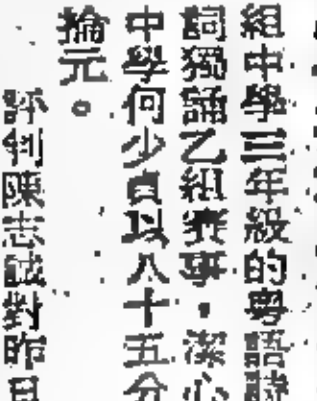 組中學三年級的粵語詩
詞獨誦乙組賽事，潔心
中學何少貞以八十五分
掄元。
評判陳志誠對昨日